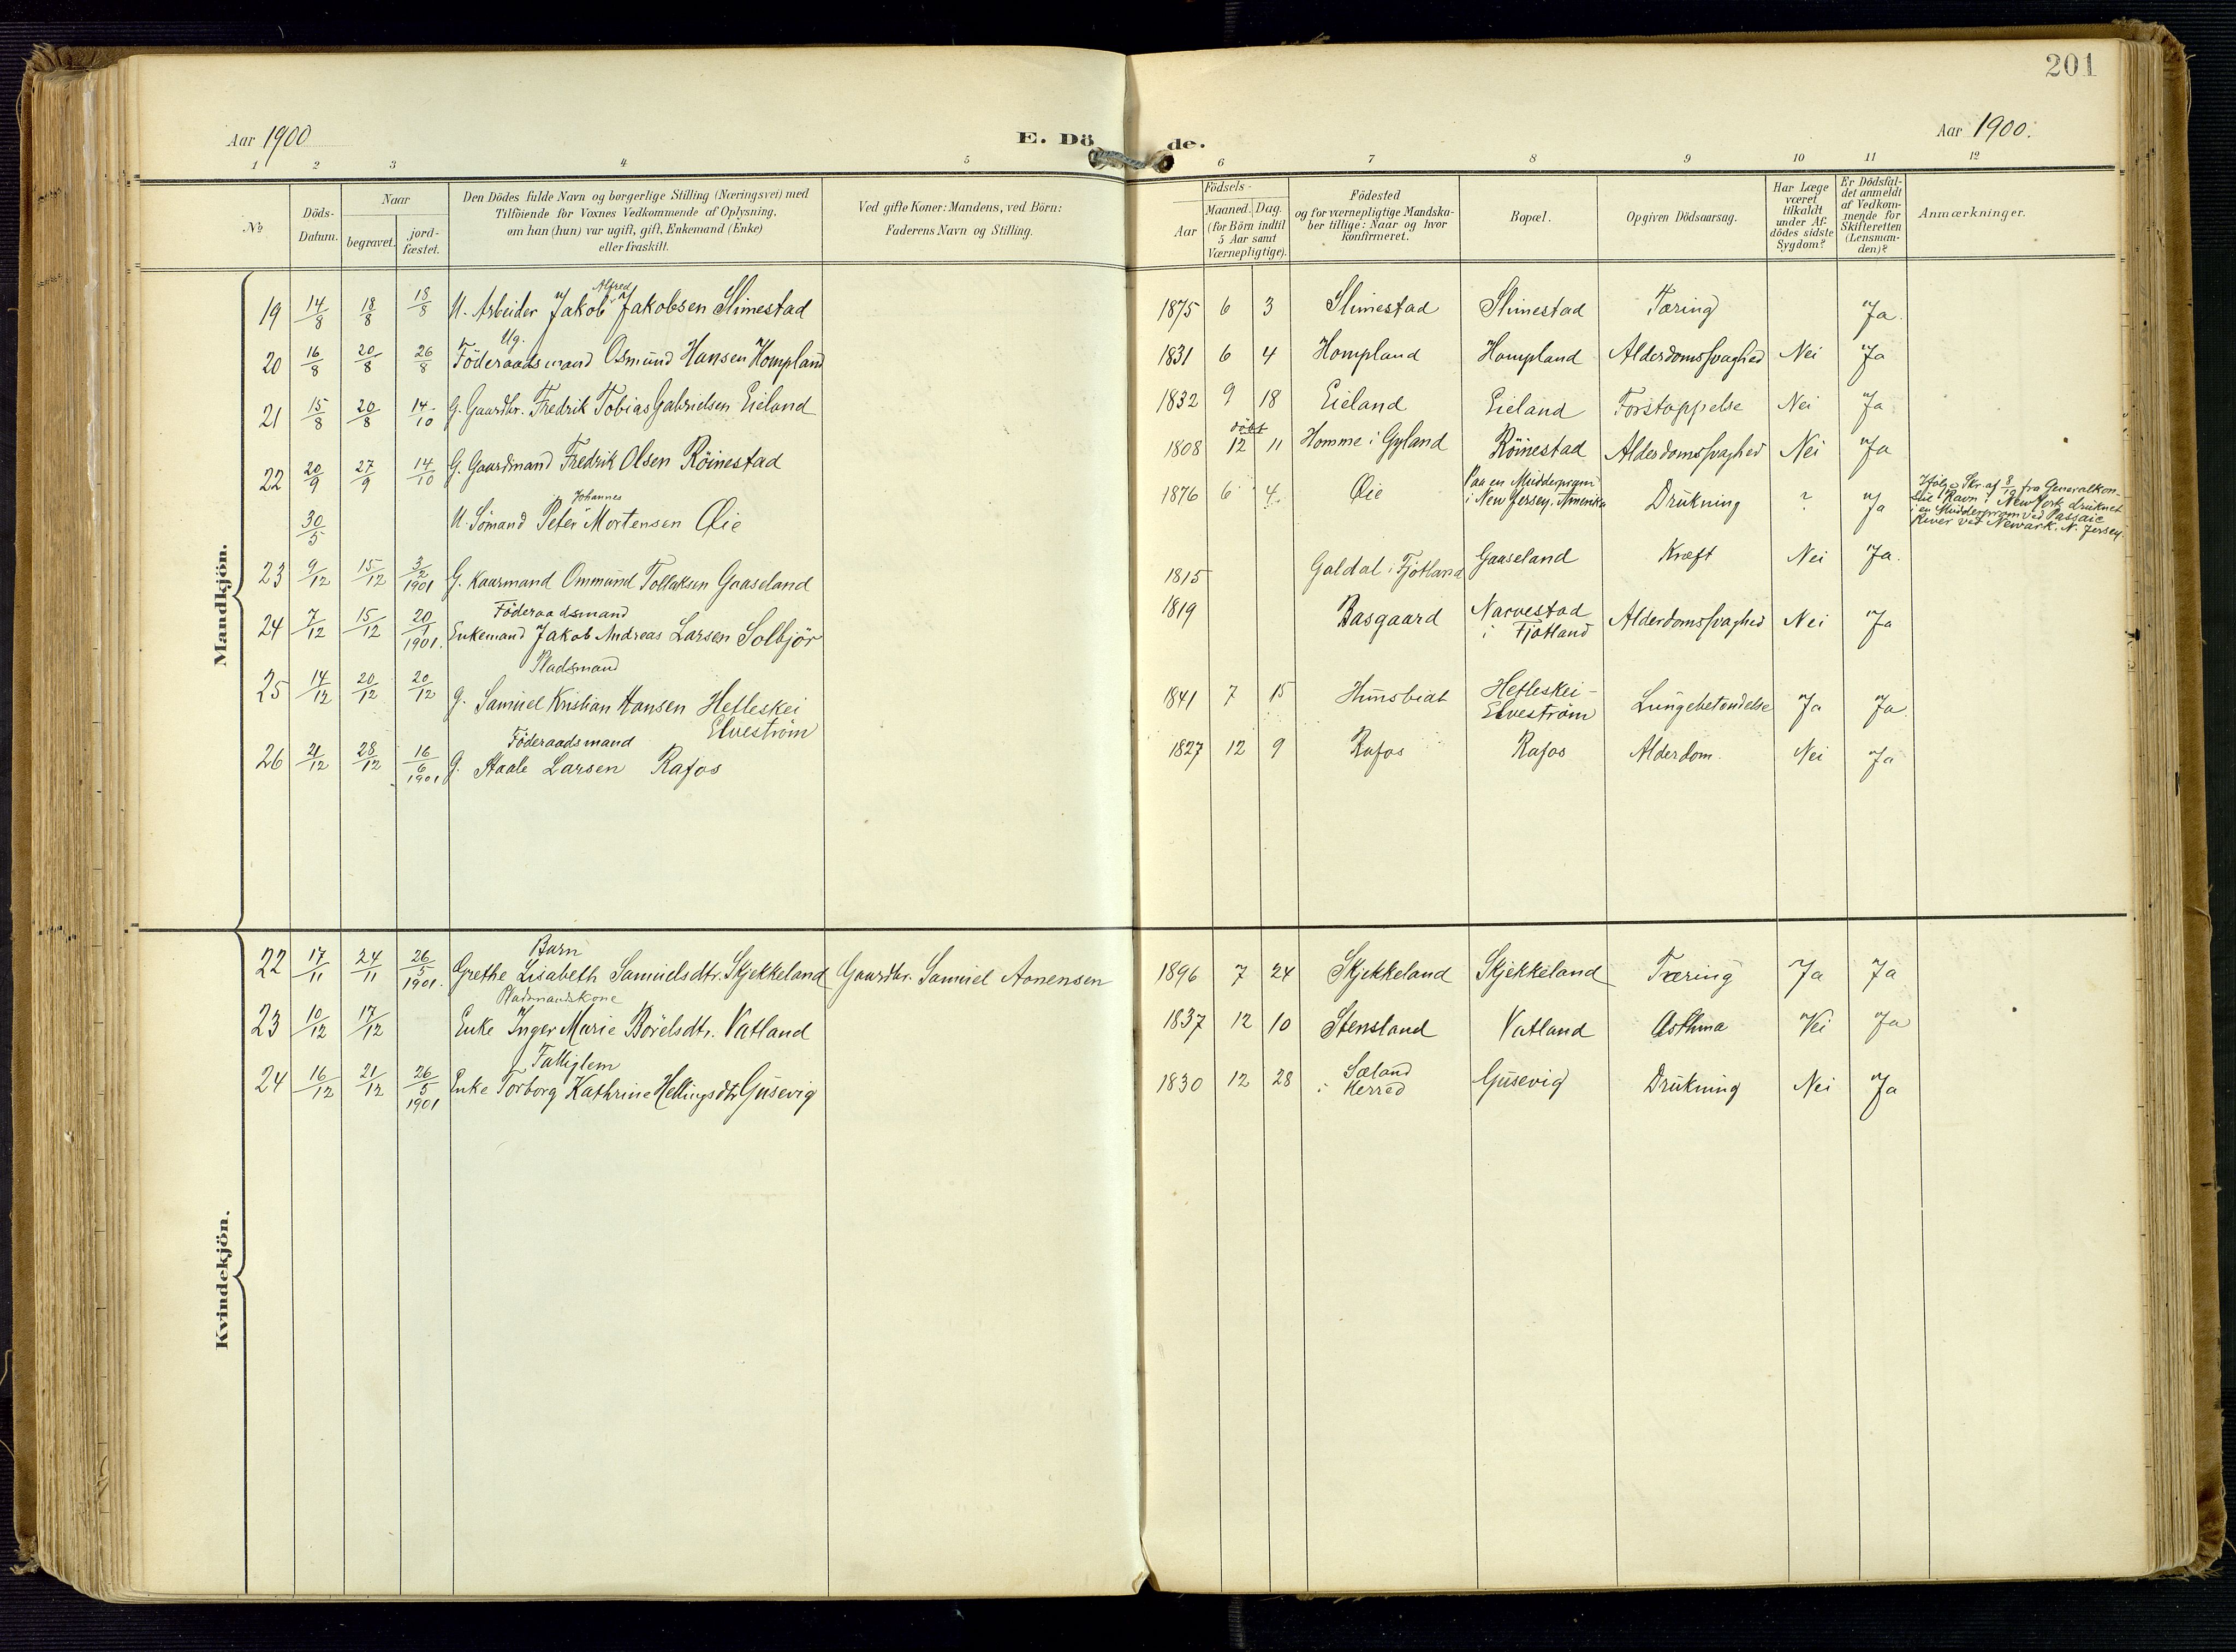 201
Aar 1900
E. Dö de.
Aar 1900.
1 2 3 4 5 6 7 8 9 10 11 12
No
Döds-Datum.
Naar
begravet.
jord-fæstet.
Den Dödes fulde Navn og borgerlige Stilling (Næringsvei) med
Tilföiende for Voxnes Vedkommende af Oplysning,
om han (hun) var ugift, gift, Enkemand (Enke)
eller fraskilt.
Ved gifte Koner: Mandens, ved Börn:
Faderens Navn og Stilling.
Födsels-
Aar
Maaned. Dag.
(for Börn indtil
5 Aar samt
Værnepligtige).
Födested
og for værnepligtige Mandska-
ber tillige: Naar og hvor
konfirmeret.
Bopæl.
Opgiven Dödsaarsag.
Har Læge
været
tilkaldt
under Af-
dödes sidste
Sygdom?
Er Dödsfal-
det anmeldt
af Vedkom-
mende for
Skifteretten
(Lensman-
den)?
Anmærkninger.
Mandkjön.
Alfred
19 14/8 18/8 18/8 U. Arbeider Jakob Jakobsen Slimestad 1875 6 3 Slimestad Slimestad Tæring Ja.
Ug.
20 16/8 20/8 26/8 Föderaadsmand Osmund Hansen Hompland 1831 6 4 Hompland Hompland Alderdomssvaghed Nei Ja
21 15/8 20/8 14/10 G. Gaardbr. Fredrik Tobias Gabrielsen Eieland 1832 9 18 Eieland Eieland Forstoppelse Nei Ja
döbt
22 20/9 27/9 14/10 G. Gaardmand Fredrik Olsen Röinestad 1808 12 11 Homme i Gyland Röinestad Alderdomssvaghed Nei Ja
Johannes
30/5 U. Sömand Peter Mortensen Øie 1876 6 4. Øie Paa en Mudderpram
i New Jersey. Amerika Drukning ? Ja Ifölge Skr. af 8/12 fra Generalkon-
sul Ravn i New York druknet
i en Mudderpram ved Passaic
River ved Newark. N. Jersey.
23 9/12 15/12 3/2 1901 G. Kaarmand Ommund Tollaksen Gaaseland 1815 Galdal i Fjotland Gaaseland Kræft Nei Ja.
Föderaadsmand
24 7/12 15/12 20/1 1901. Enkemand Jakob Andreas Larsen Solbjör 1819 Basgaard Narvestad
i Fjotland Alderdomssvaghed Nei Ja
Pladsmand
25 14/12 20/12 20/12 G. Samuel Kristian Hansen Hefleskei
Elveström 1841 7 15 Hefleskei-
Elveström Lungebetændelse Ja Ja
Föderaadsmand
26 21/12 28/12 16/6 1901 G. Staale Larsen Rafos 1827 12 9 Rafos Rafos Alderdom. Nei Ja
Kvindekjön.
Barn
22 17/11 24/11 26/5 1901. Grethe Lisabeth Samuelsdtr. Skjekkeland Gaardbr. Samuel Aanensen 1896 7 24 Skjekkeland Skjekkeland Tæring Ja Ja
Pladsmandskone
23 10/12 17/12 Enke Inger Marie Börelsdtr. Vatland 1837 12 10 Stensland Vatland Asthma Nei Ja
Fattiglem
24 16/12 21/12 26/5 1901 Enke Torborg Kathrine Hellingsdtr Gusevig 1830 12 28 Sæland
i Herred Gusevig Drukning Nei Ja